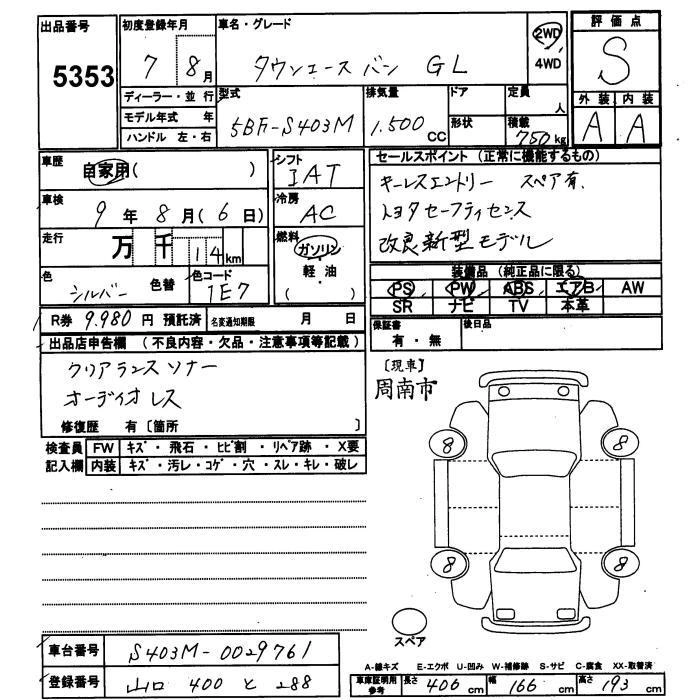 出品番号 5353
初度登録年月 7 8月
車名・グレード タウンエース バン GL
2WD
4WD
評価点 S
外装 内装
A A
ディーラー・並行
モデル年式 年
ハンドル 左・右
型式 5BF-S403M
排気量 1.500 CC
ドア
形状
定員 人
積載 750 kg
車歴 自家用( )
車検 9年8月(6日)
走行 万 千 14 km
色 シルバー 色替
色コード 1E7
シフト IAT
冷房 AC
燃料 ガソリン
軽・油
( )
セールスポイント (正常に機能するもの)
キーレスエントリー スペア有.
トヨタセーフティセンス
改良新型モデル
装備品 (純正品に限る)
PS PW ABS エアB AW
SR ナビ TV 本革
R券 9.980 円 預託済 名変通知期限 月 日
保証書 有・無
後日品
出品店申告欄 (不良内容・欠品・注意事項等記載)
クリアランスソナー
オーディオレス
修復歴 有〔箇所 〕
〔現車〕
周南市
検査員 FW キズ・飛石・ヒビ割・リペア跡・X要
記入欄 内装 キズ・汚レ・コゲ・穴・スレ・キレ・破レ
8 8
8 8
スペア
車台番号 S403M-0029761
登録番号 山口 400 と 288
A-線キズ E-エクボ U-凹み W-補修跡 S-サビ C-腐食 XX-取替済
車庫証明用参考 長さ 406 cm 幅 166 cm 高さ 193 cm